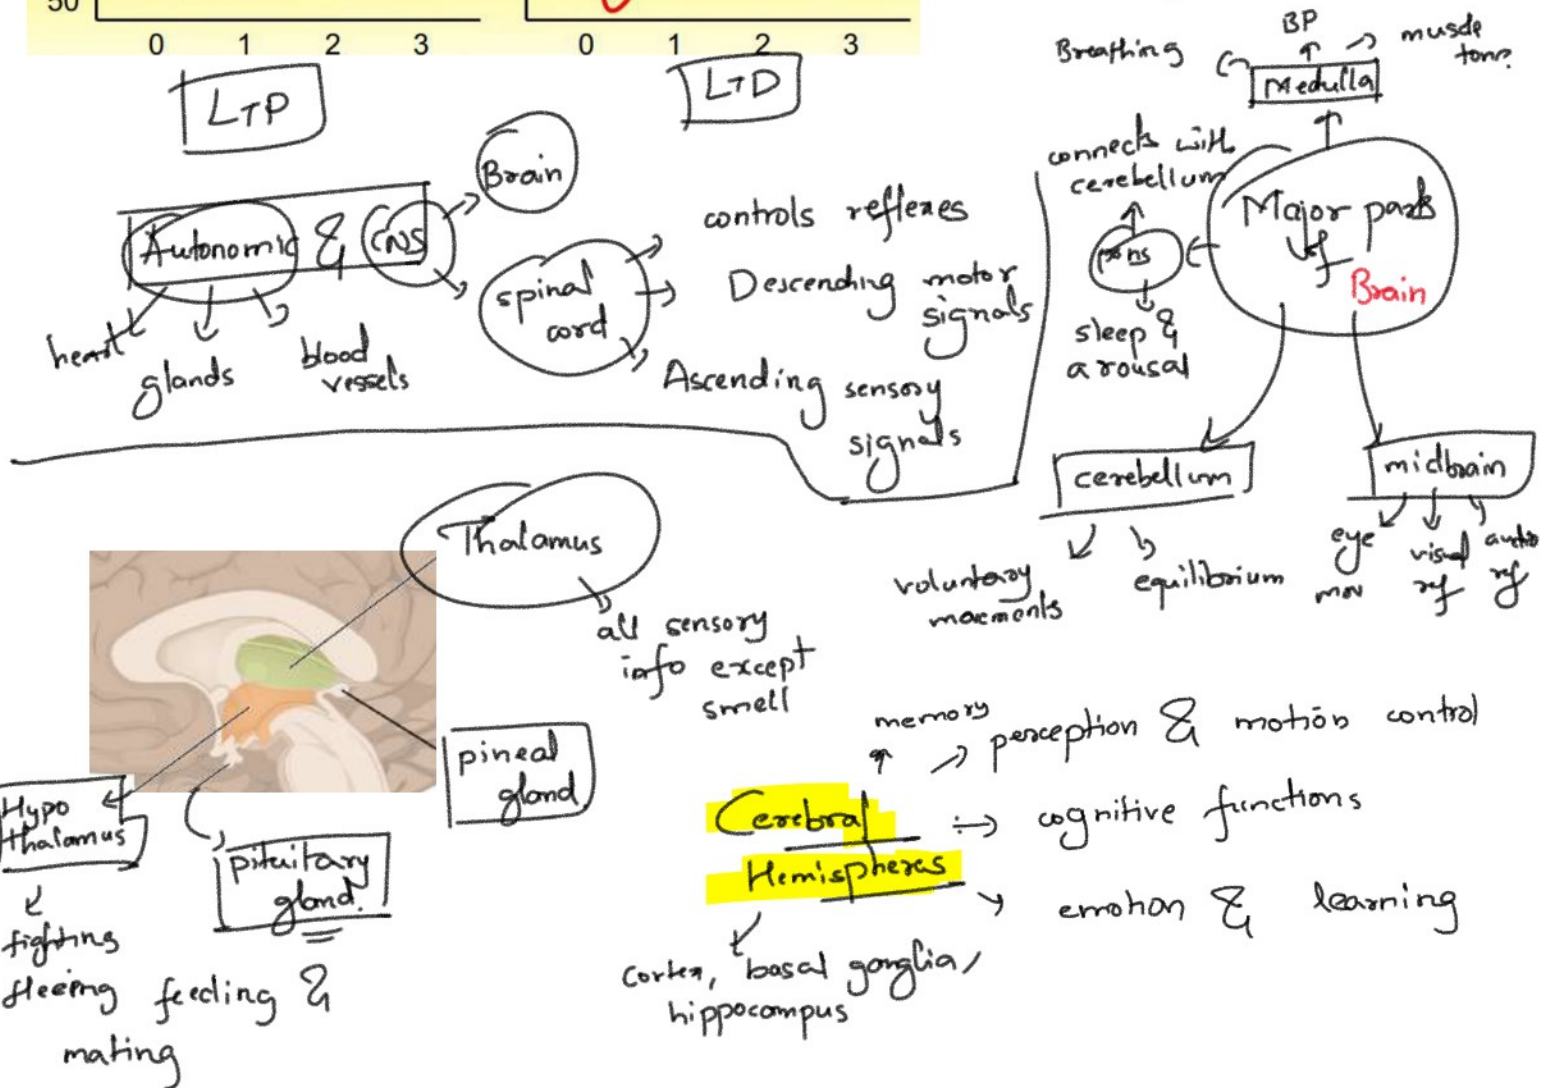 50
0 1 2 3
0 1 2 3
LTP
LTD
Autonomic & CNS
heart
glands
blood
vessels
Brain
spinal
cord
controls reflexes
Descending motor
signals
Ascending sensory
signals
BP
Breathing
muscle
tone
Medulla
connects with
cerebellum
Major parts
of
Brain
pons
sleep &
arousal
cerebellum
voluntary
equilibrium
midbrain
eye
mov
visual
ref
audio
ref
Thalamus
all sensory
info except
smell
pineal
gland
Hypo
thalamus
pituitary
gland.
fighting
fleeing feeding &
mating
memory
perception & motion control
Cerebral
Hemispheres
cognitive functions
emotion & learning
cortex, basal ganglia,
hippocampus